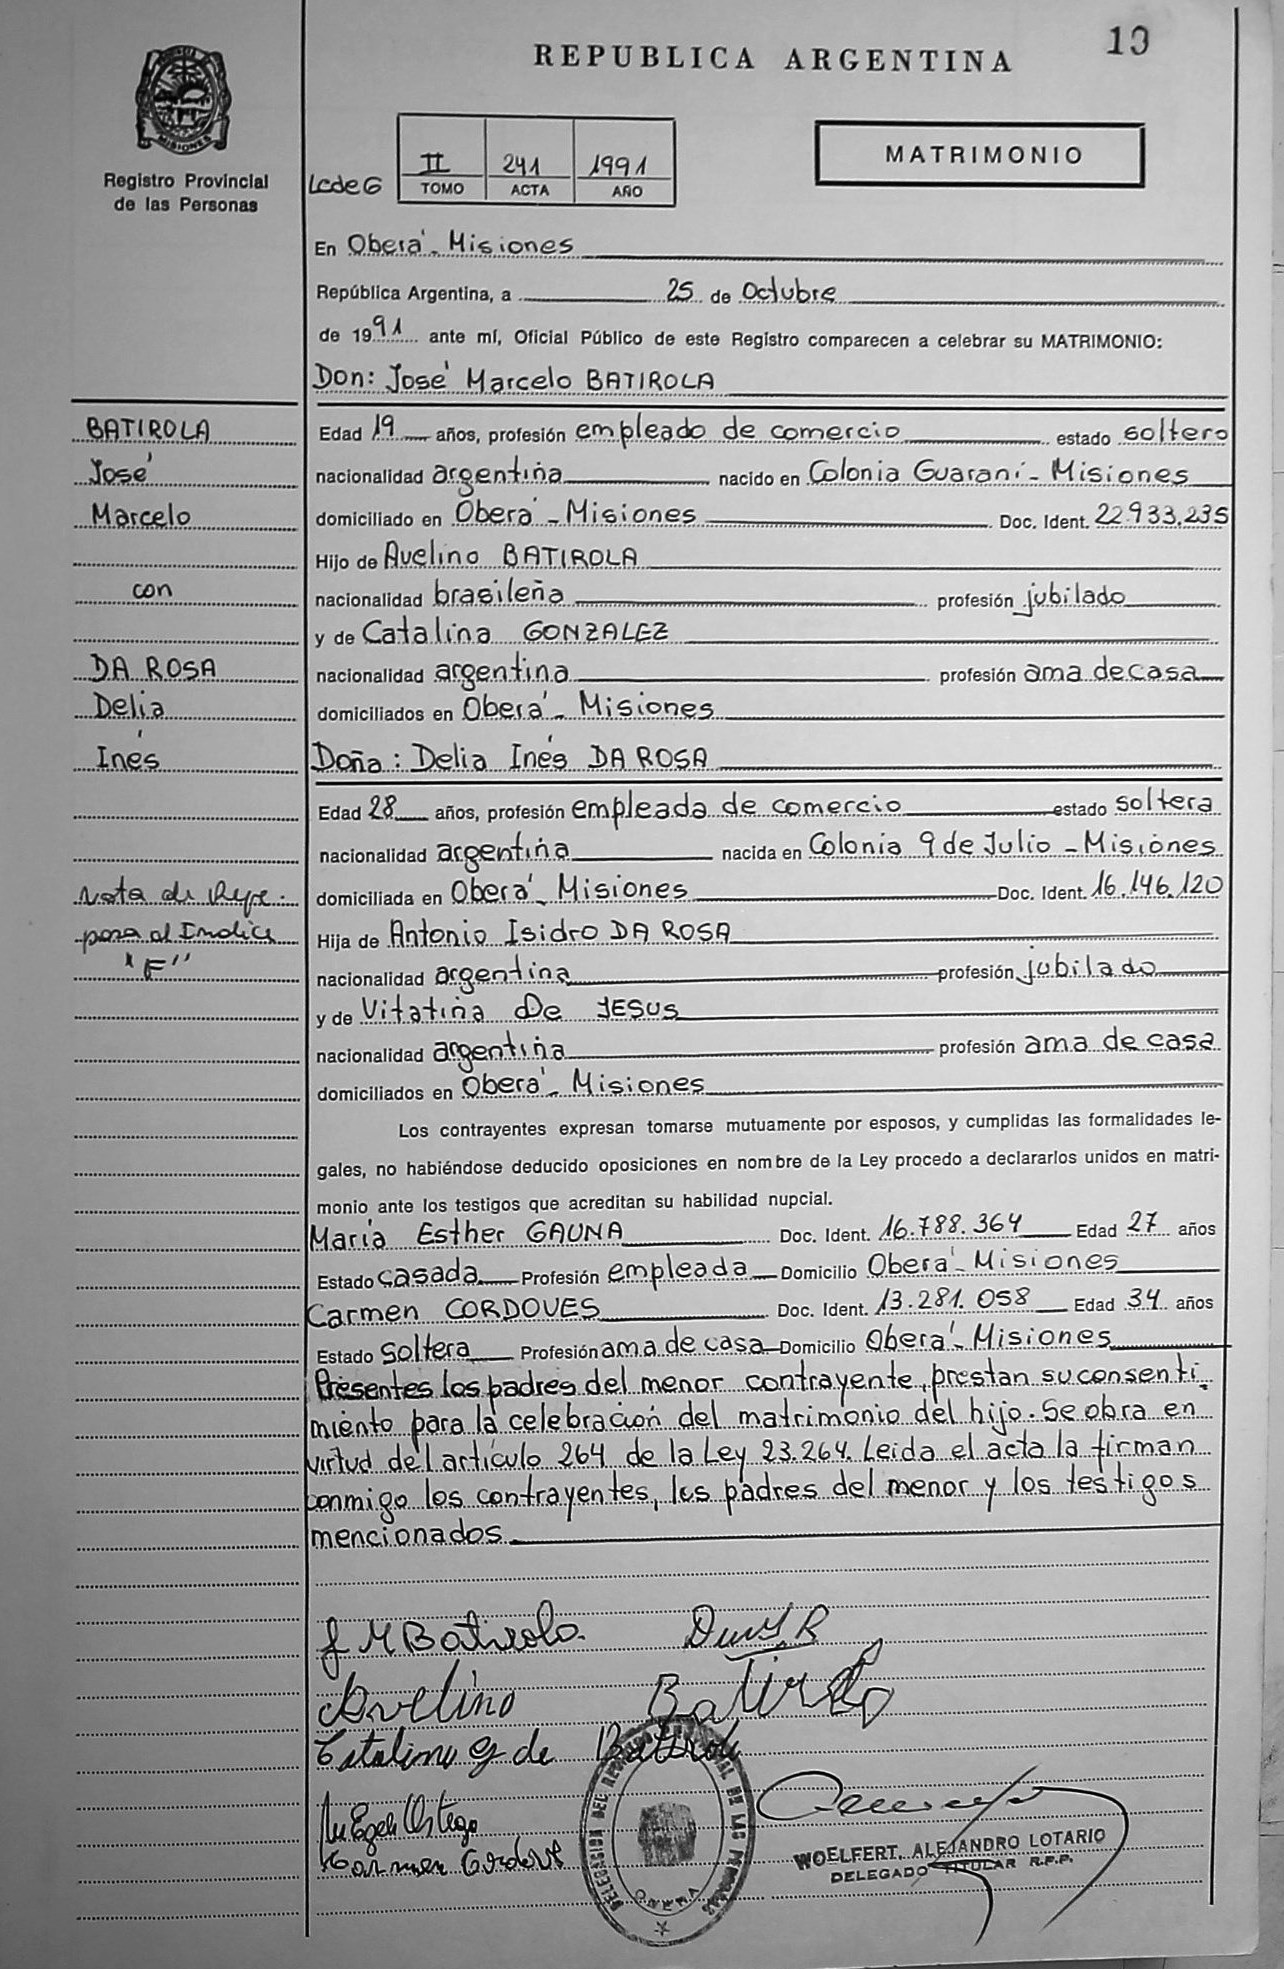 10
REPUBLICA ARGENTINA
MISIONES
Registro Provincial
de las Personas
LcdeG
II 241 1991
TOMO ACTA AÑO
MATRIMONIO
En Oberá - Misiones
República Argentina, a 25 de Octubre
de 1991 ante mí, Oficial Público de este Registro comparecen a celebrar su MATRIMONIO:
Don: José Marcelo BATIROLA
BATIROLA
José
Marcelo
con
DA ROSA
Delia
Inés
Edad 19 años, profesión empleado de comercio estado soltero
nacionalidad argentina nacido en Colonia Guaraní - Misiones
domiciliado en Oberá - Misiones Doc. Ident. 22.933.235
Hijo de Avelino BATIROLA
nacionalidad brasileña profesión jubilado
y de Catalina GONZALEZ
nacionalidad argentina profesión ama de casa
domiciliados en Oberá - Misiones
Doña: Delia Inés DA ROSA
Edad 28 años, profesión empleada de comercio estado soltera
nacionalidad argentina nacida en Colonia 9 de Julio - Misiones
domiciliada en Oberá - Misiones Doc. Ident. 16.146.120
Hija de Antonio Isidro DA ROSA
nacionalidad argentina profesión jubilado
y de Vitatina De JESUS
nacionalidad argentina profesión ama de casa
domiciliados en Oberá - Misiones
Nota de
para al Indice
"F"
Los contrayentes expresan tomarse mutuamente por esposos, y cumplidas las formalidades le-
gales, no habiéndose deducido oposiciones en nombre de la Ley procedo a declararlos unidos en matri-
monio ante los testigos que acreditan su habilidad nupcial.
Maria Esther GAUNA Doc. Ident. 16.788.364 Edad 27 años
Estado casada Profesión empleada Domicilio Oberá - Misiones
Carmen CORDOVES Doc. Ident. 13.281.058 Edad 34 años
Estado soltera Profesión ama de casa Domicilio Oberá - Misiones
Presentes los padres del menor contrayente, prestan su consenti-
miento para la celebración del matrimonio del hijo. Se obra en
virtud del artículo 264 de la Ley 23.264. Leida el acta la firman
conmigo los contrayentes, los padres del menor y los testigos
mencionados
J M Batirola
Avelino Batirola
Catalina G de Batirola
Carmen Cordoves
DELEGACION DEL REGISTRO PROVINCIAL DE LAS PERSONAS
OBERA
WOELFERT, ALEJANDRO LOTARIO
DELEGADO TITULAR R.P.P.